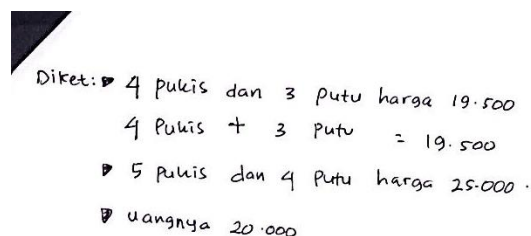 Diket: 4 pukis dan 3 putu harga 19.500
4 Pukis + 3 Putu = 19.500
5 Pukis dan 4 Putu harga 25.000.
uangnya 20.000